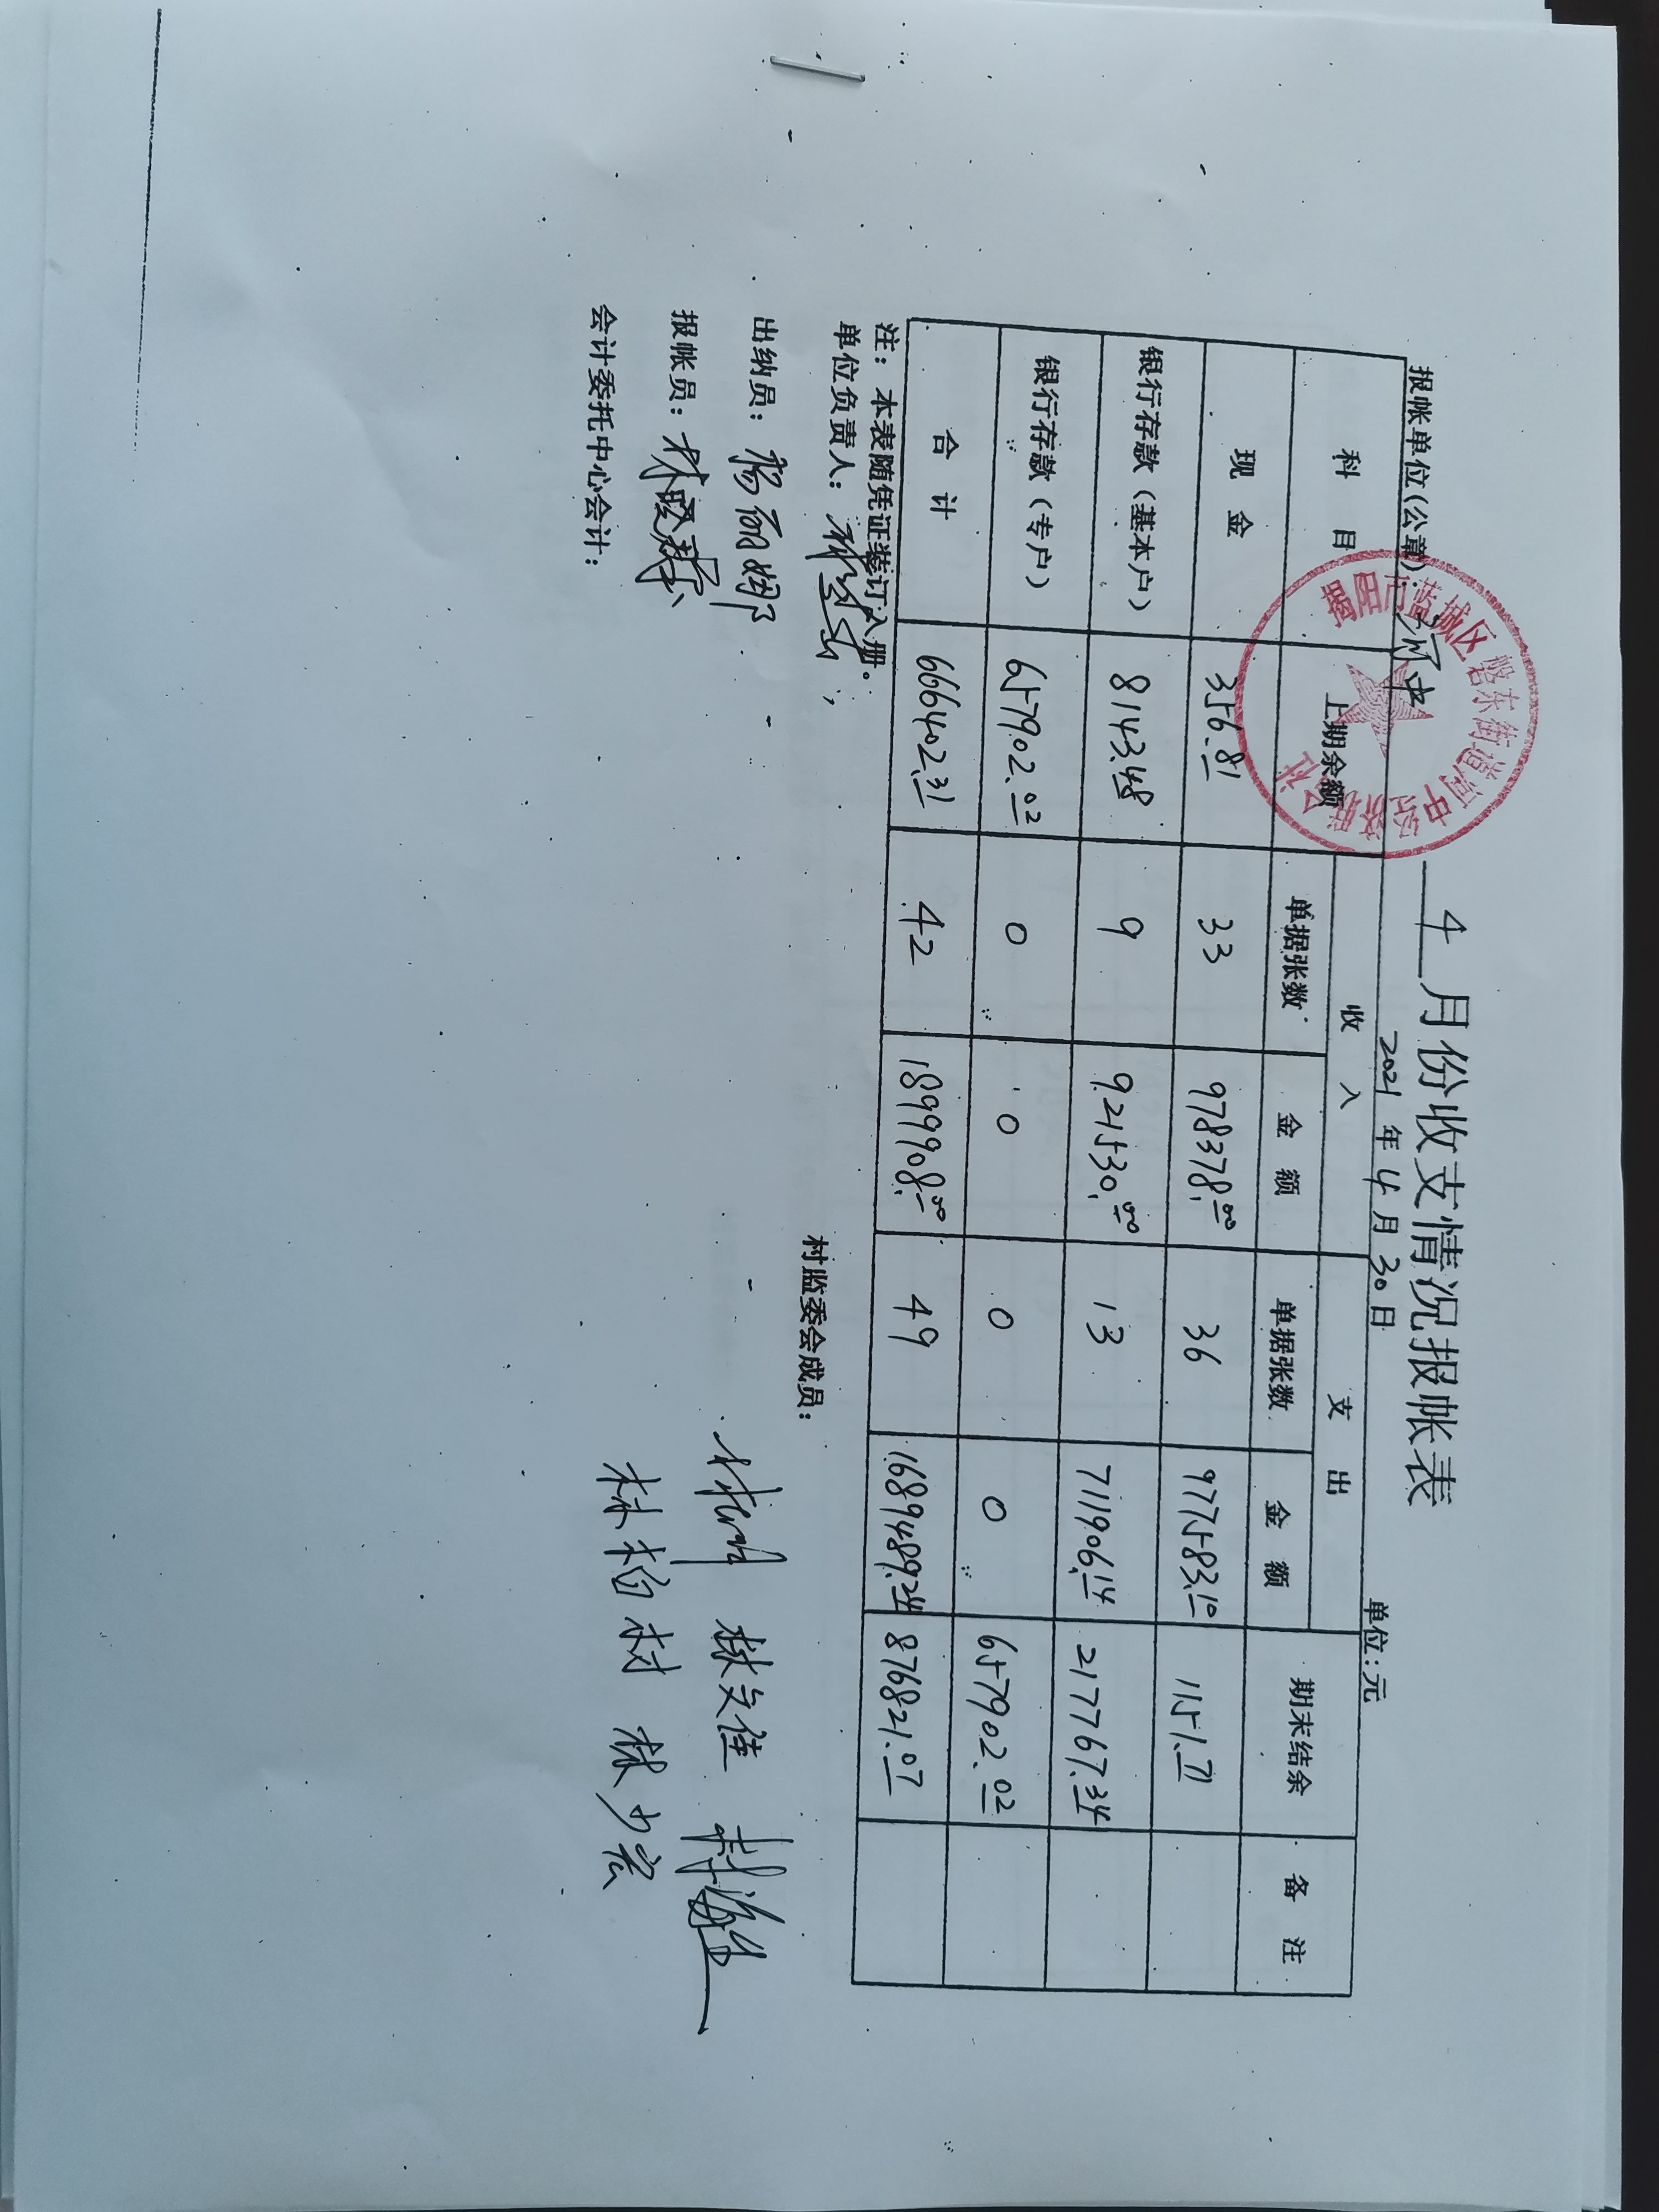 4 月份收支情况报帐表
2021 年 4 月 30 日
报帐单位(公章): 河中 单位:元
揭阳市蓝城区磐东街道河中经济联合社
科 目 上期余额 收 入 支 出 期末结余 备 注
单据张数 金 额 单据张数 金 额
现 金 356.81 33 978378.00 36 977583.10 1151.71
银行存款(基本户) 8143.48 9 921530.00 13 711906.14 217767.34
银行存款(专户) 657902.02 0 0 0 0 657902.02
合 计 666402.31 42 1899908.00 49 1689489.24 876821.07
注:本表随凭证装订入册。
单位负责人:
村监委会成员:
出纳员:杨丽娜
报帐员:林
林文佳
会计委托中心会计:
林梅树 林少宏